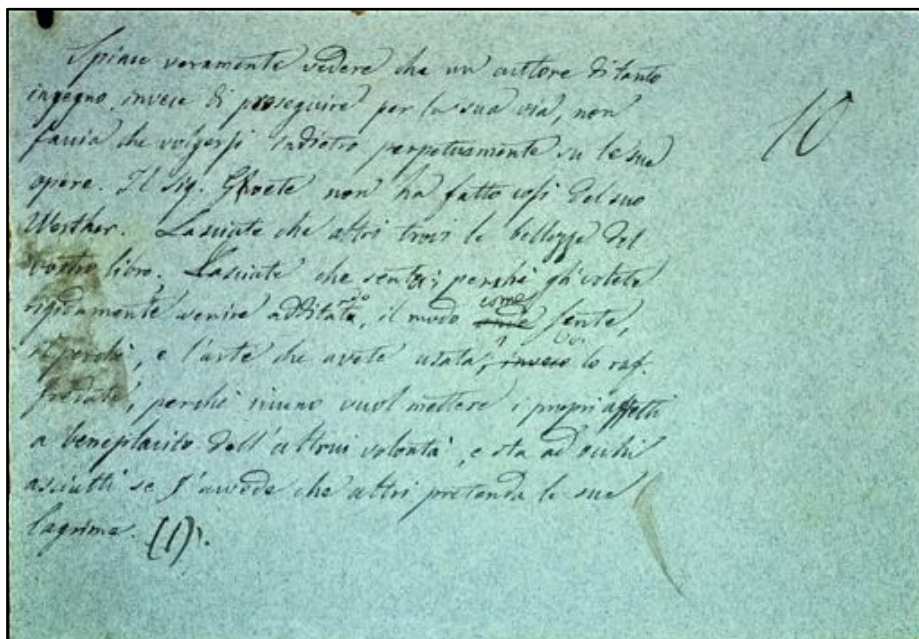 Spiace veramente vedere che un autore di tanto
ingegno, invece di proseguire per la sua via, non
faccia che volgersi indietro perpetuamente su le sue
opere. Il sig. Ghoete non ha fatto così del suo
Werther. Lasciate che altri trovi le bellezze del
vostro libro. Lasciate che senta; perchè gli volete
rigidamente venire additando, il modo come sente,
il perchè, e l'arte che avete usata; Voi lo raf-
freddate, perchè niuno vuol mettere i propri affetti
a beneplacito dell'altrui volontà, e sta ad occhi
asciutti se s'avvede che altri pretenda le sue
lagrime. (1).
10